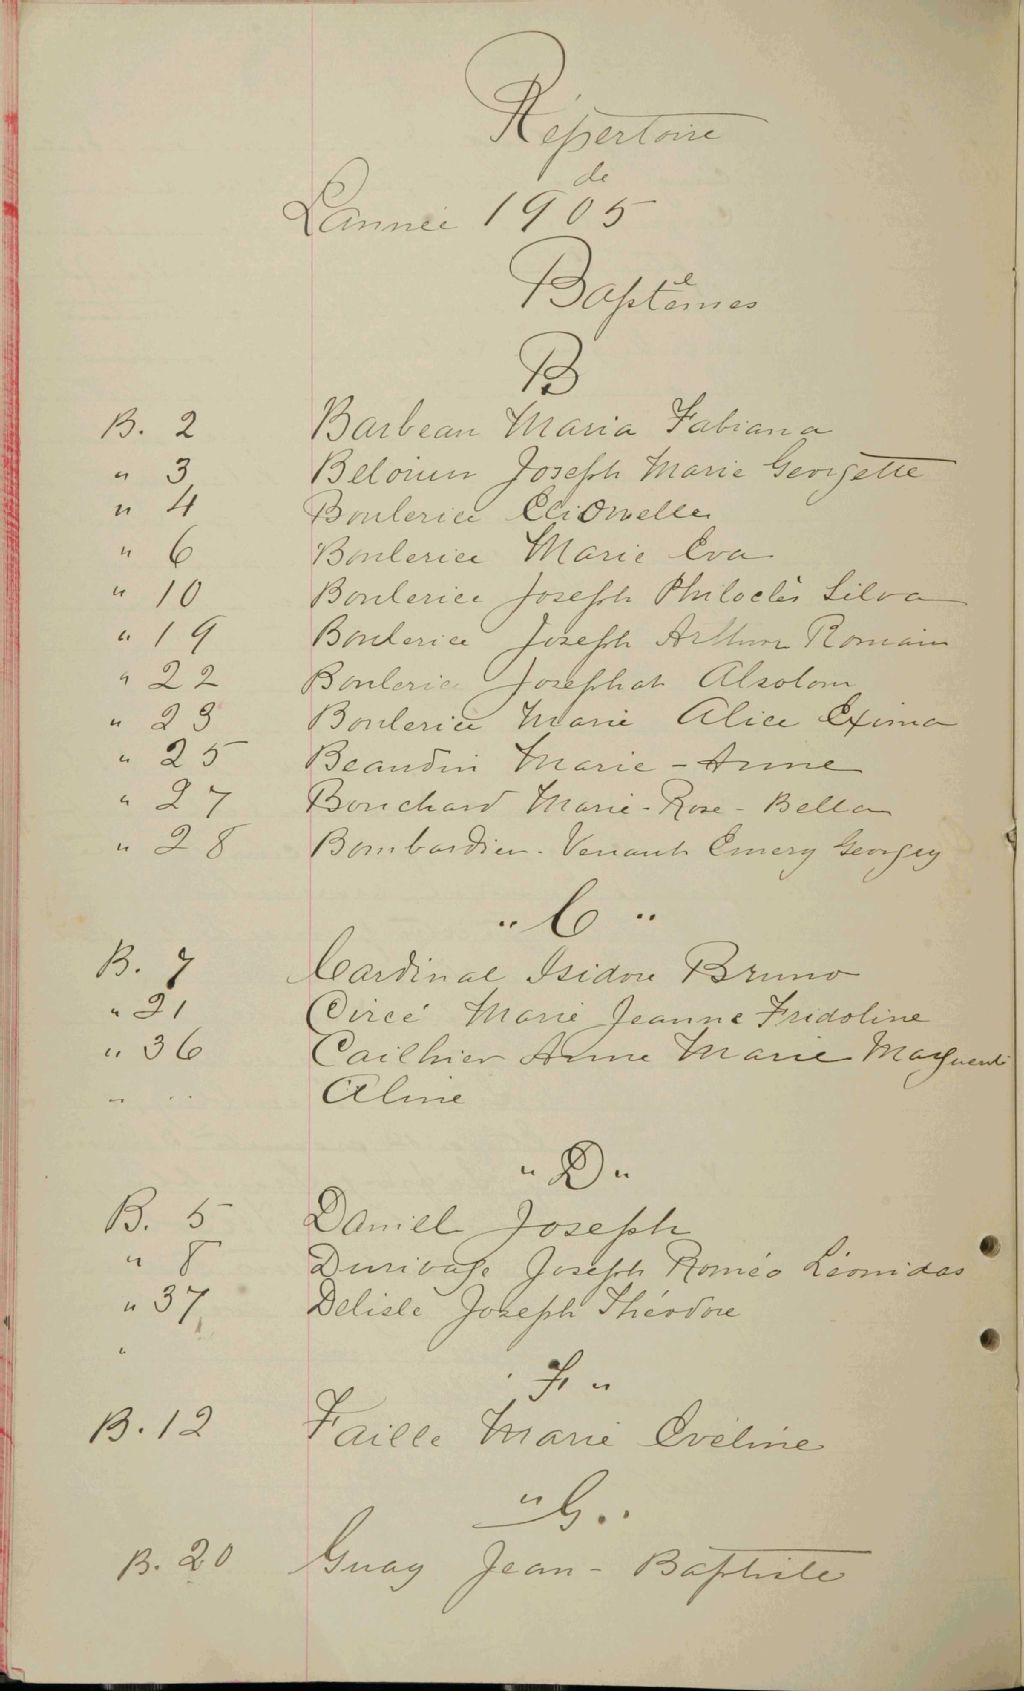 Répertoire
de
L'année 1905
Baptêmes
B
B. 2 Barbeau Maria Fabiana
" 3 Beloin Joseph Marie Georgette
" 4 Boulerice
" 6 Boulerice Marie Eva
" 10 Boulerice Joseph Philoclès Silva
" 19 Boulerice Joseph Arthur Romain
" 22 Boulerice Josephat Absolom
" 23 Boulerice Marie Alice Exima
" 25 Beaudin Marie - Anne
" 27 Bouchard Marie - Rose - Bella
" 28 Bombardier - Venant Emery Georgey
" C "
B. 7 Cardinal Isidore Bruno
" 21 Circé Marie Jeanne Fridoline
" 36 Cailhier Anne Marie Marguerite
" " Aline
" D "
B. 5 Daniel Joseph
" 8 Durivage Joseph Roméo Léonidas
" 37 Delisle Joseph Théodore
"
" F "
B. 12 Faille Marie Eveline
" G "
B. 20 Guay Jean - Baptiste